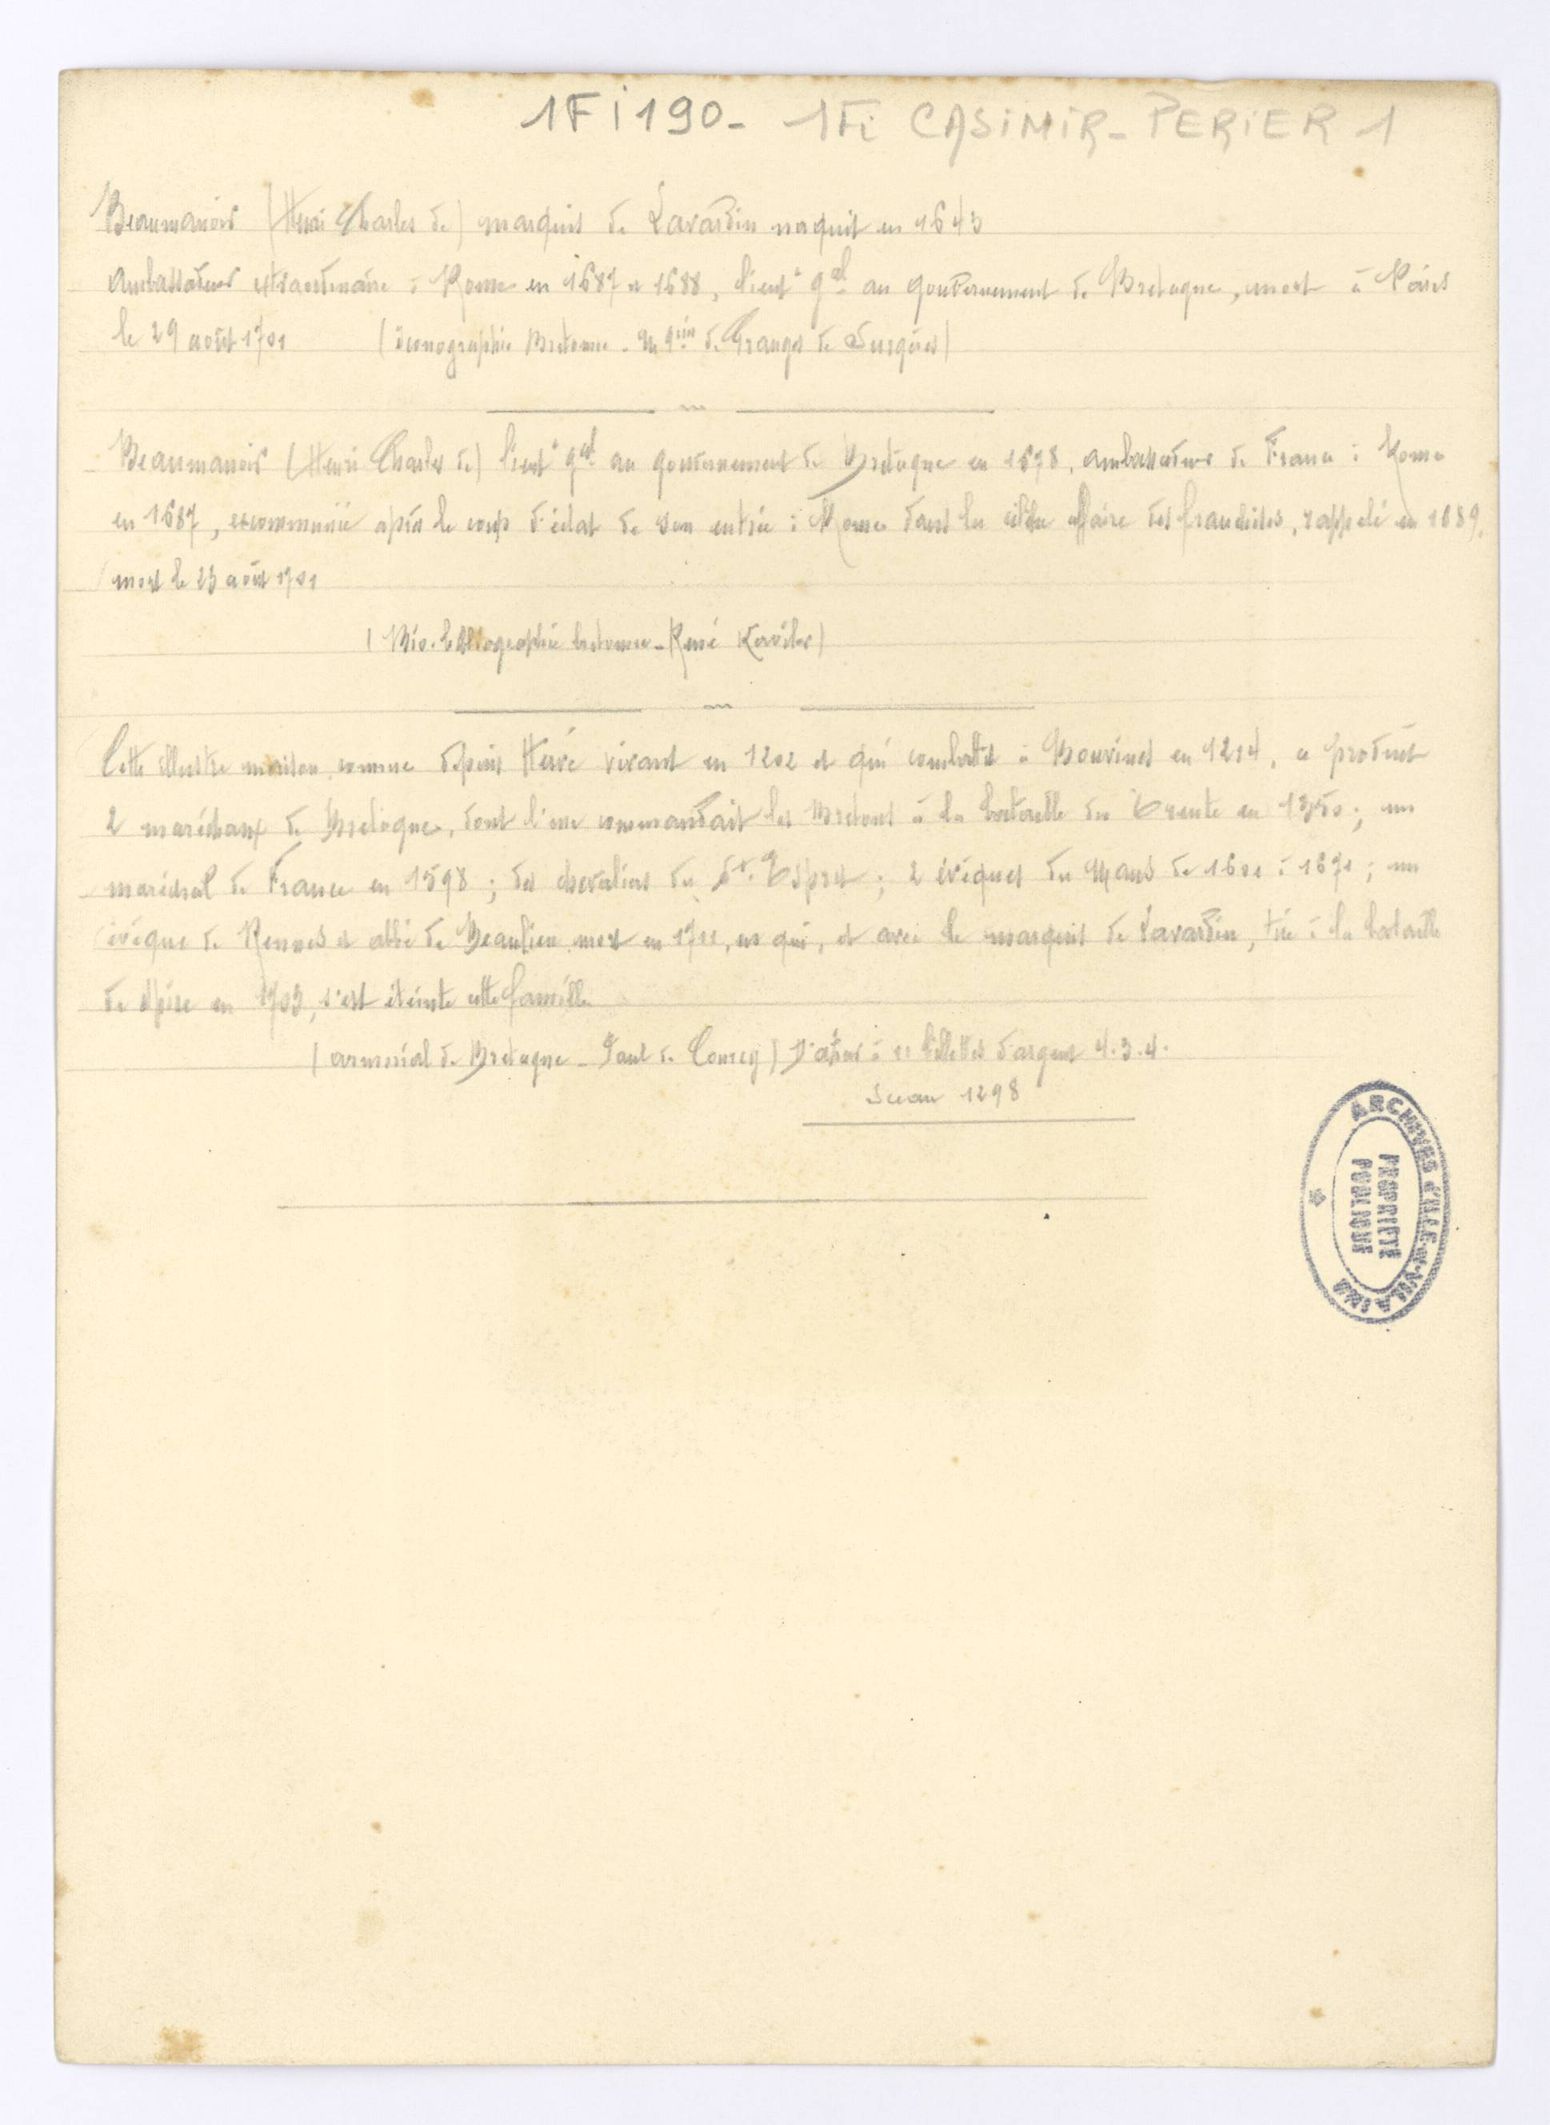 1Fi190- 1Fi CASiMiR-PERiER 1
Beaumanoir (Henri Charles de) marquis de Lavardin naquit en 1643
ambassadeur extraordinaire à Rome en 1687 et 1688, lieut t gal au gouvernement de Bretagne, mort à Paris
le 29 août 1701 (iconographie Bretonne. Mquis de Granges de Surgères)
Beaumanoir (Henri Charles de) lieut t gal au gouvernement de Bretagne en 1678, ambassadeur de France à Rome
en 1687, excommunié après le coup d'éclat de son entrée à Rome dans la célèbre affaire des franchises, rappelé en 1689,
mort le 23 août 1701
(Bio-bibliographie bretonne - René Kerviler)
Cette illustre maison, connue depuis Hervé vivant en 1202 et qui combattit à Bouvines en 1214, a produit
2 maréchaux de Bretagne, dont l'un commandait les Bretons à la bataille des Trente en 1350; un
maréchal de France en 1598; des chevaliers du St. Esprit; 2 évêques du Mans de 1601 à 1671; un
évêque de Rennes et abbé de Beaulieu mort en 1711, en qui, et avec le marquis de Lavardin, tué à la bataille
de Spire en 1703, s'est éteinte cette famille
(armorial de Bretagne - Paul de Courcy) D'azur à 11 billettes d'argent 4.3.4.
Sceau 1298
ARCHIVES d'ILLE-et-VILAINE
PROPRIÉTÉ
PUBLIQUE